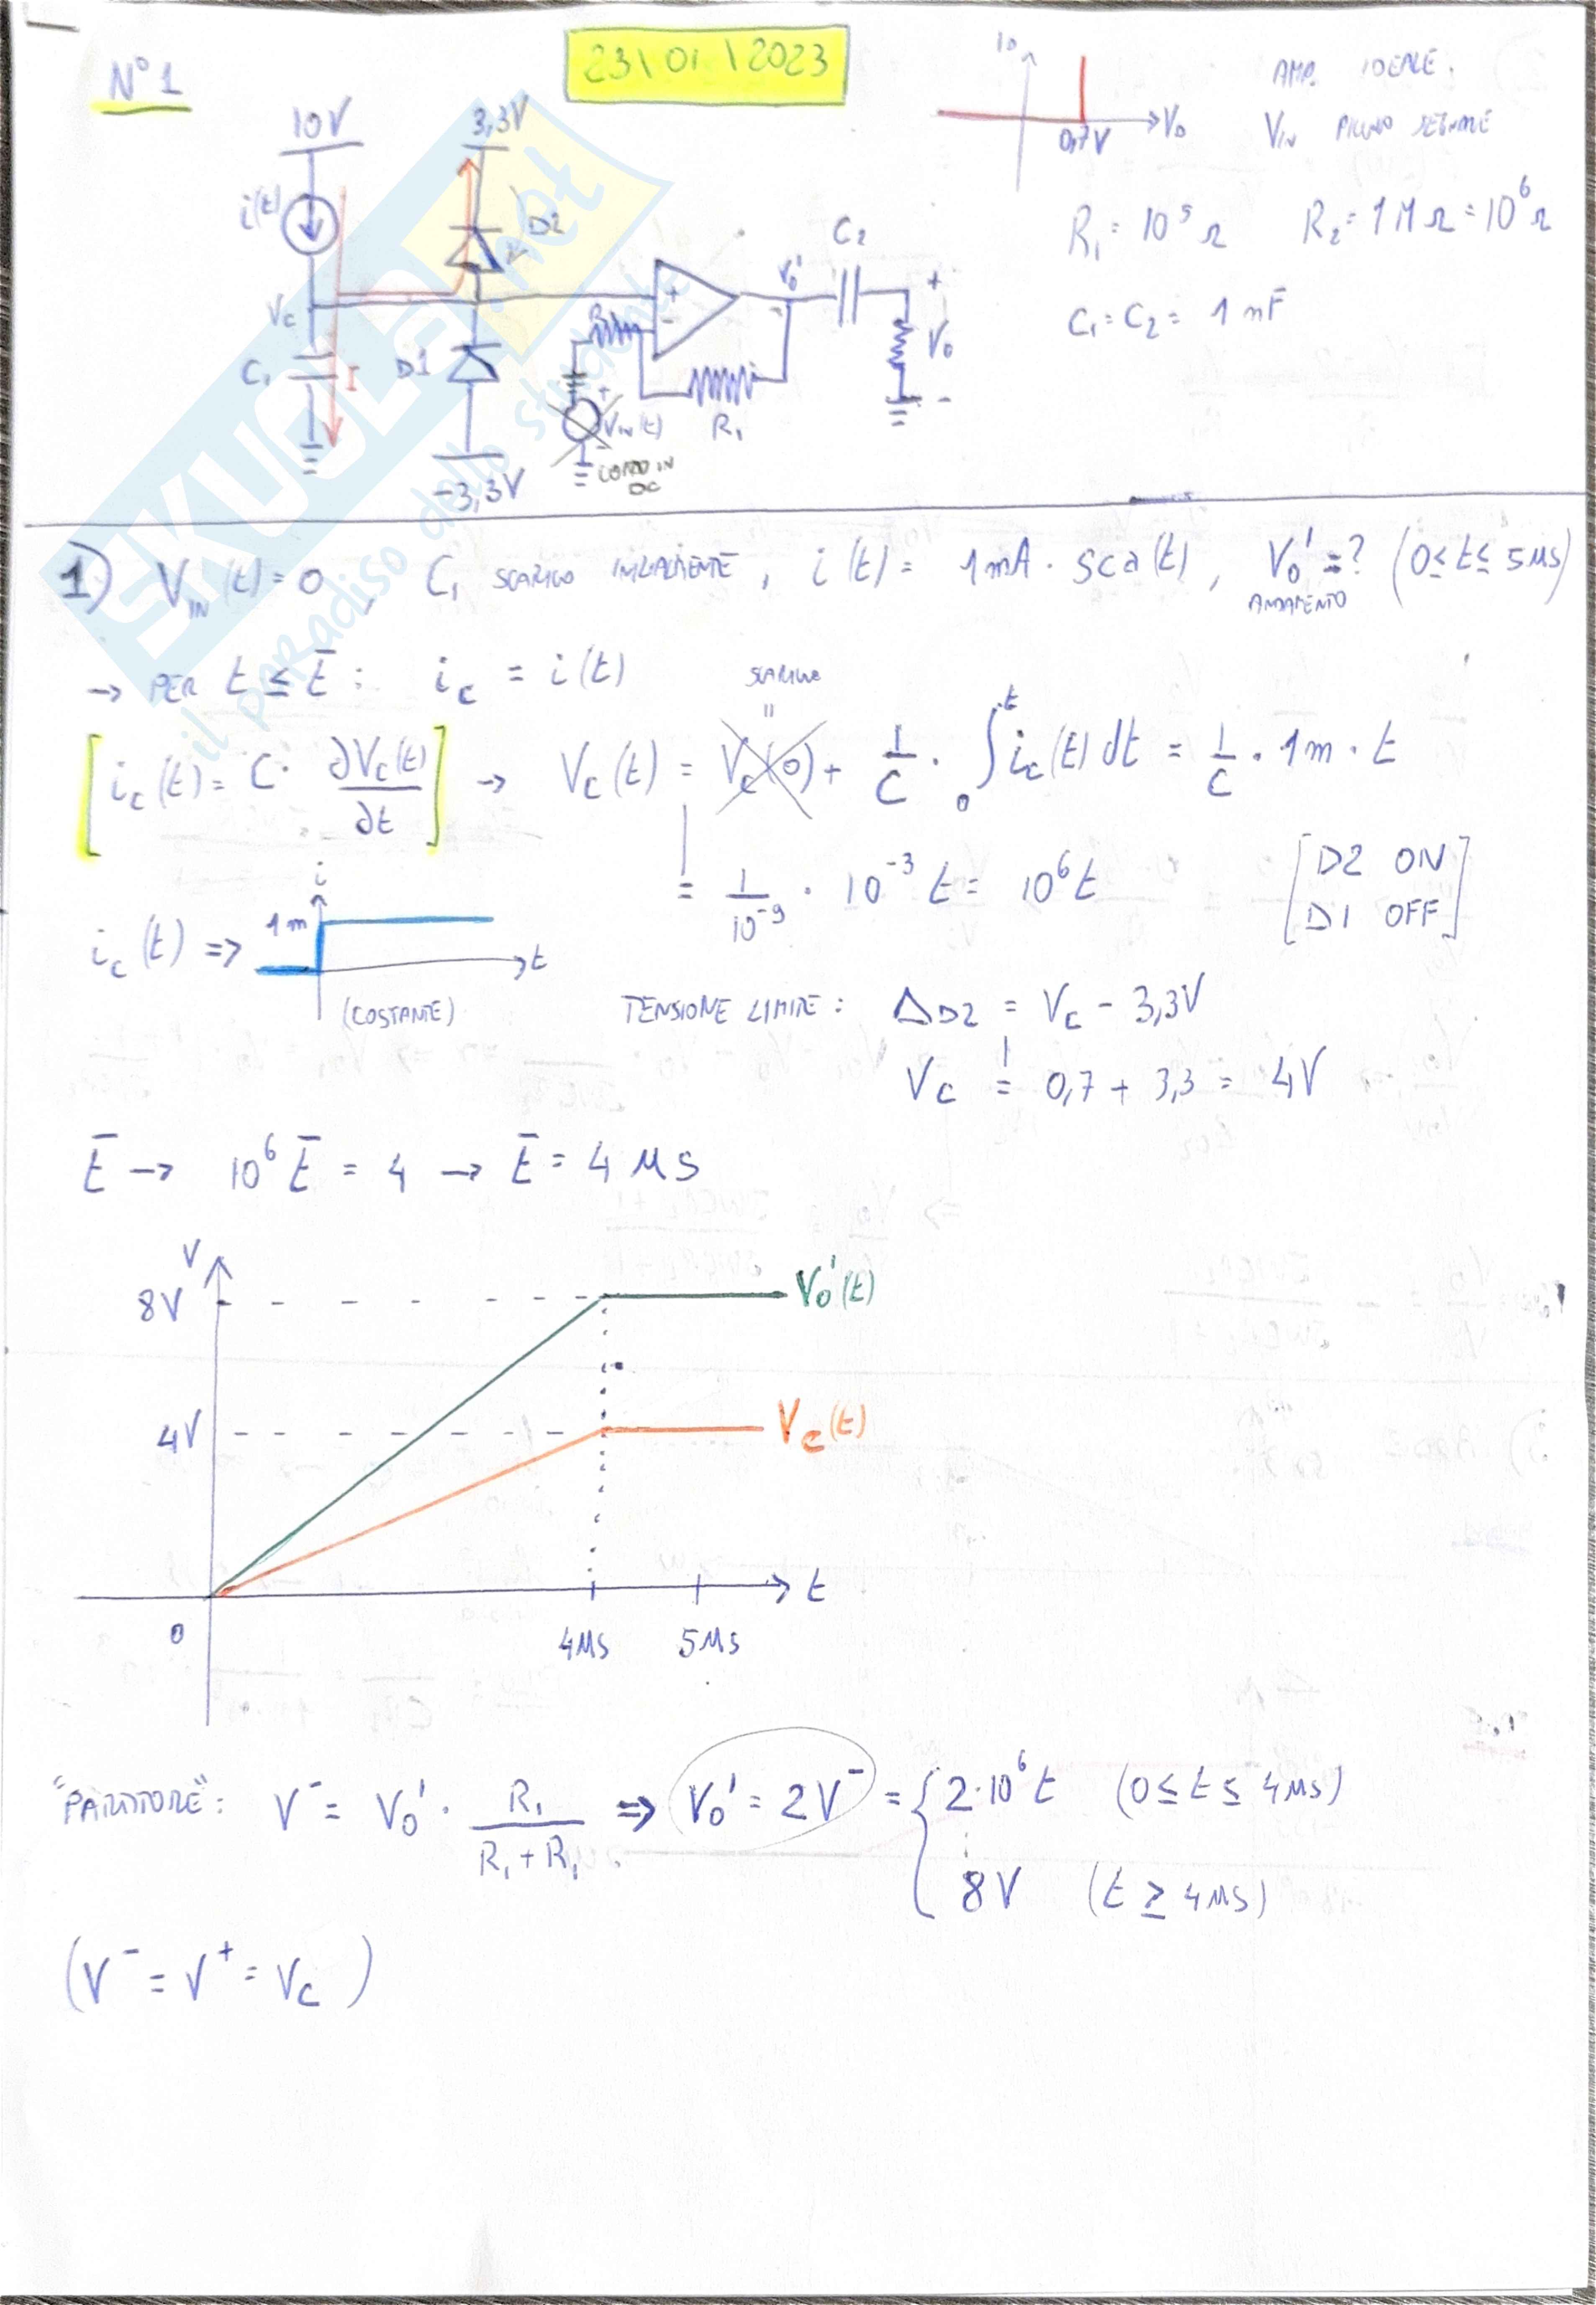 N°1
23\01\2023
10V
3,3V
i(t)
D2
Vc
C1
I
D1
-3,3V
R1
+
-
VIN(t)
CORTO IN
DC
R1
Vo'
C2
+
Vo
-
ID
0,7V
VD
AMP. IDEALE.
VIN PICCOLO SEGNALE
R1 = 10^5 Ω R2 = 1MΩ = 10^6 Ω
C1 = C2 = 1 nF
SKUOLA.net
il paradiso dello studente
1) VIN(t) = 0, C1 SCARICO INIZIALMENTE, i(t) = 1mA · sca(t), Vo' = ? (0 ≤ t ≤ 5µs)
ANDAMENTO
→ PER t ≤ t̄ : ic = i(t)
SCARICO
=
[ic(t) = C · ∂Vc(t)/∂t] → Vc(t) = Vc(0) + 1/C · ∫0^t ic(t) dt = 1/C · 1m · t
= 1/10^-9 · 10^-3 t = 10^6 t
[D2 ON
D1 OFF]
ic(t) =>
i
1m
t
(COSTANTE)
TENSIONE LIMITE : ΔD2 = Vc - 3,3V
Vc != 0,7 + 3,3 = 4V
t̄ → 10^6 t̄ = 4 → t̄ = 4 µs
V
8V
Vo'(t)
4V
Vc(t)
0
4µs
5µs
t
"PARTITORE": V^- = Vo' · R1/(R1 + R1) => Vo' = 2V^- = { 2·10^6 t (0 ≤ t ≤ 4µs)
8V (t ≥ 4µs)
(V^- = V^+ = Vc)